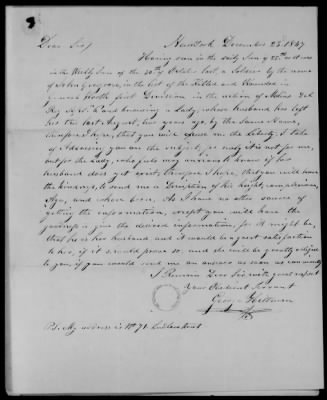 Dear Sir New York December 23, 1847
Having seen in the daily Sun of 25th inst and
in the Weekly Sun of the 30th of October last, a Soldier by the name
of John in the list of the Killed and Wounded in
fourth first Division in the action of Molino del
Rey and knowing a Lady, whose husband has left
her two last August, two years ago, by the Same Name,
therefore I hope, that you will excuse me the Liberty, I take
of Addressing you on the subject, as really it is not for me,
but for the Lady, who feels very anxious to know if her
husband does yet exist, therefore I hope, that you will have
the kindness, to send me a Description of his height, complexion,
Age, and where born. As I have no other source of
getting the information, except you will have the
goodness to give the desired information, for it might be,
that he is her husband and it would be a great satisfaction
to her, if it should prove so, and she would be greatly obliged
to you, if you would send me an answer as soon as
I Remain Dear Sir, with great respect
your Obedient Servant
George
P.S. My address is No 71 Ludlow Street